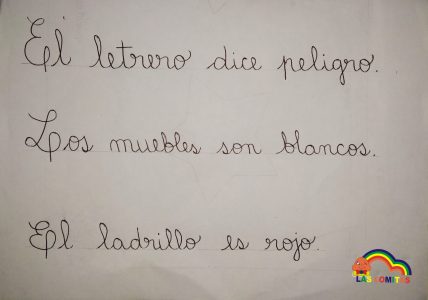 El letrero dice peligro.
Los muebles son blancos.
El ladrillo es rojo.